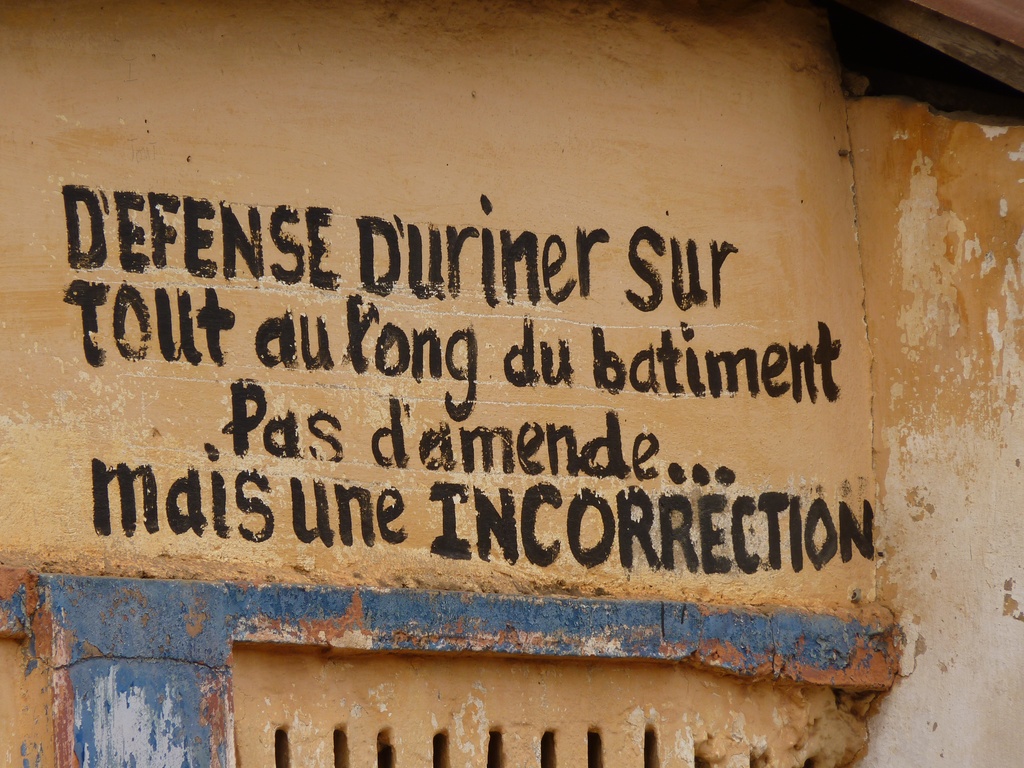 D'EFENSE D'uriner sur
TOUt au l'ong du batiment
Pas d'amende...
mais une INCORRECTION.